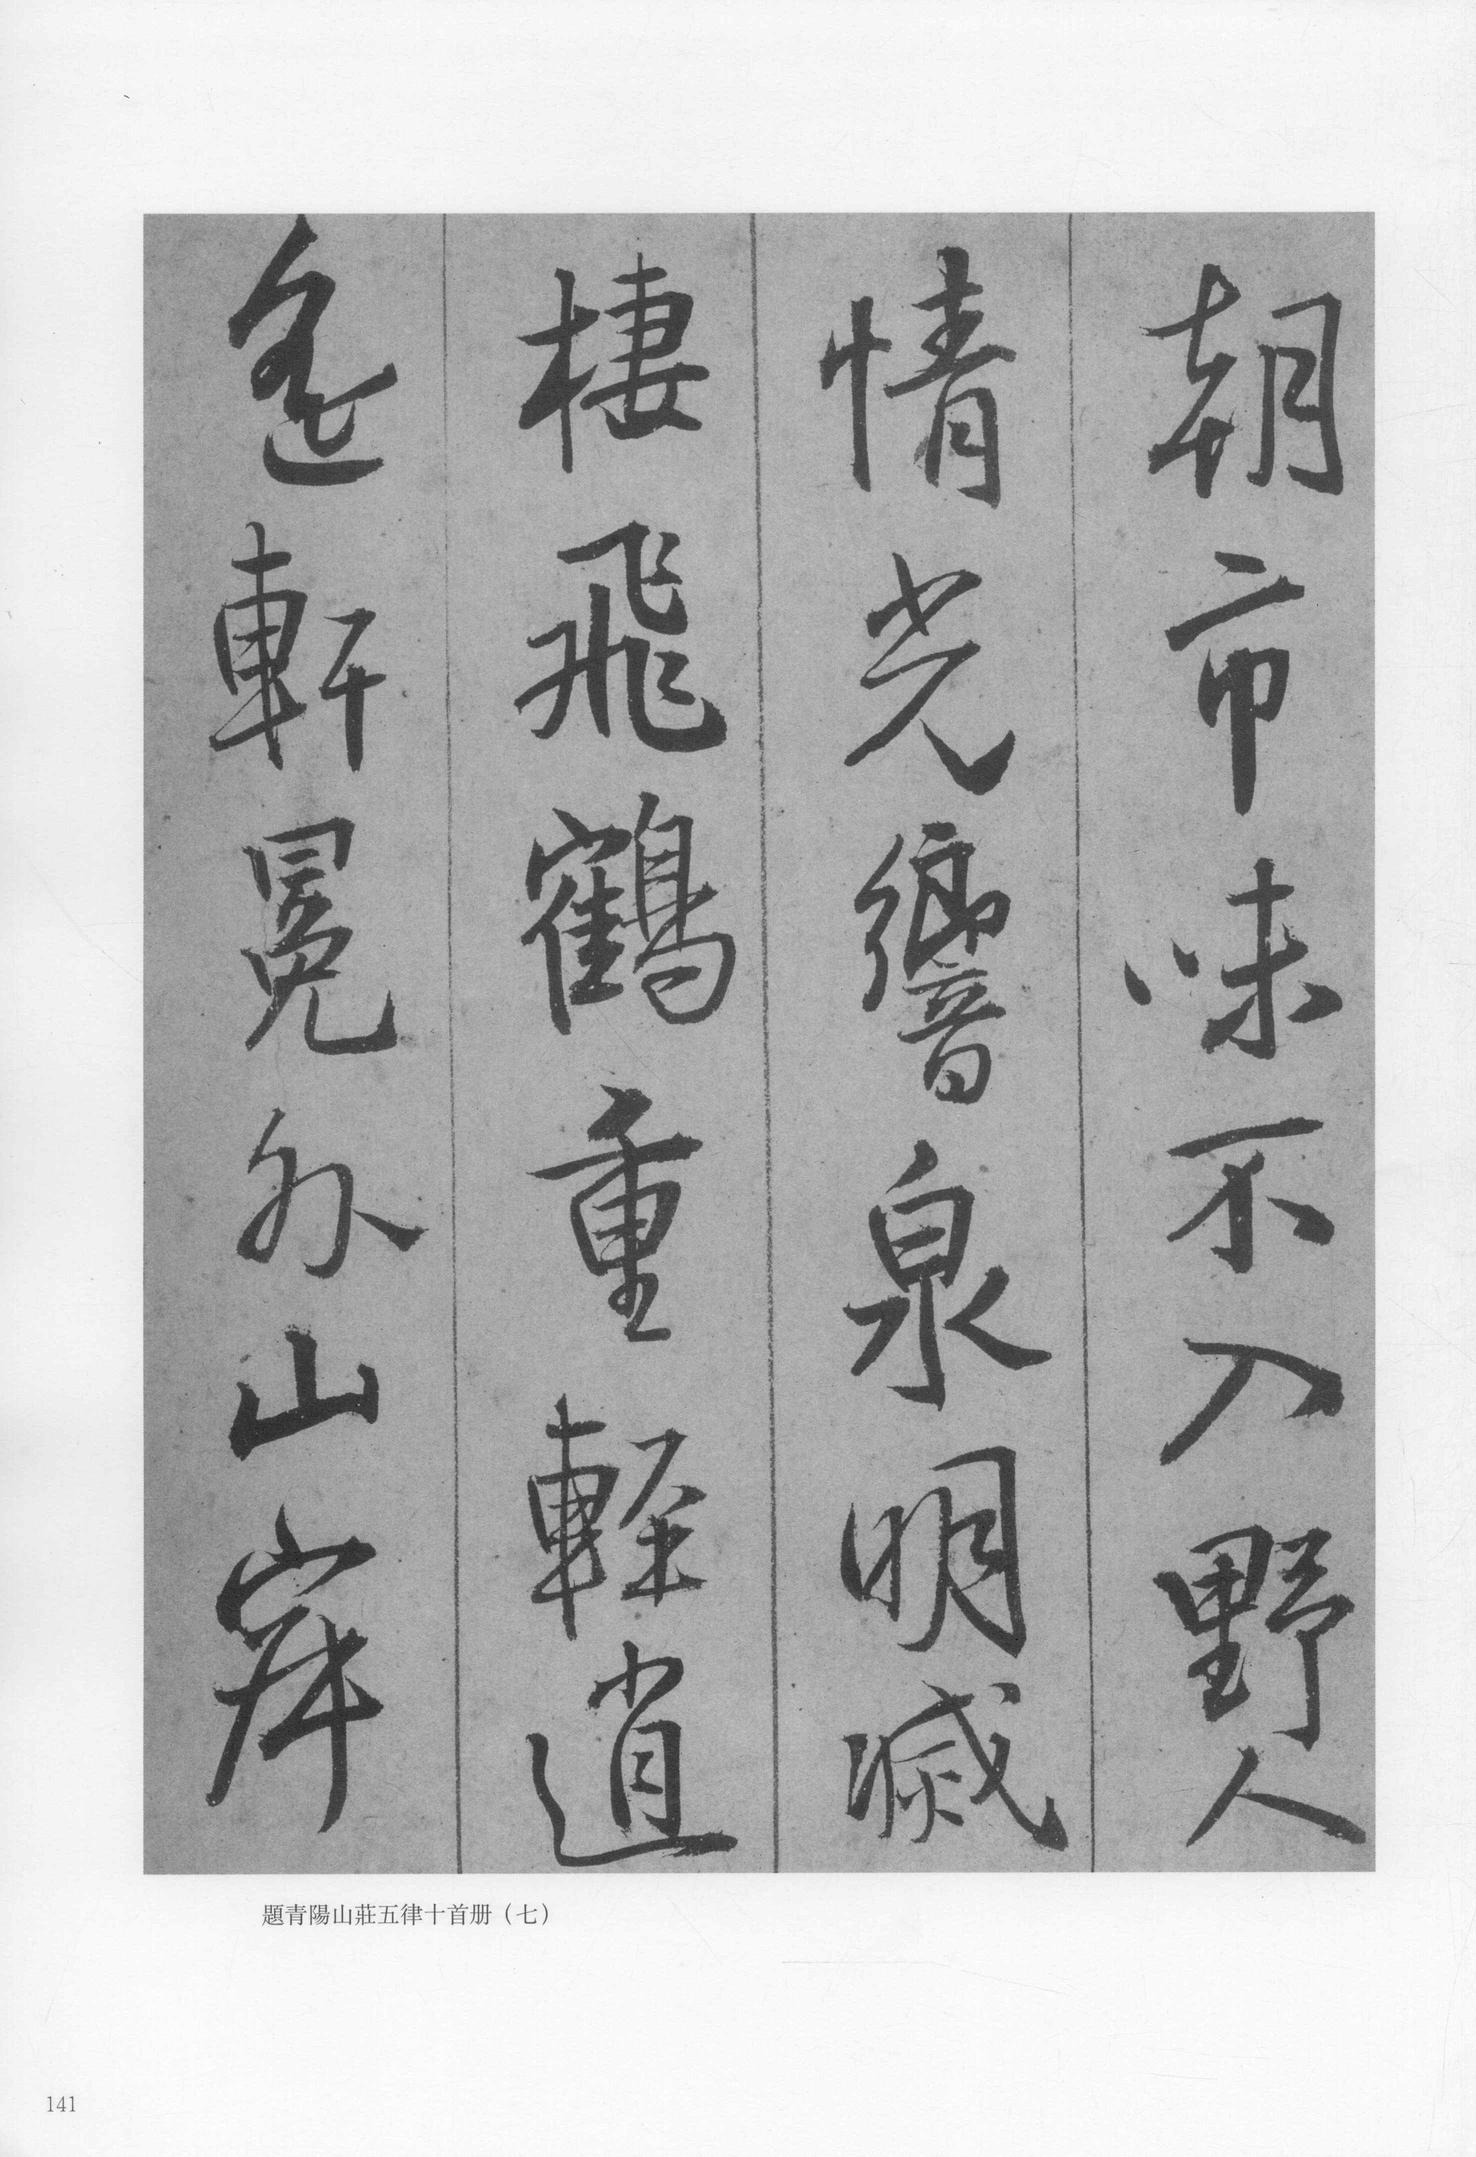 朝市味不入野人
情光響泉明滅
棲飛鶴重輕逍
遙軒冕外山岸
題青陽山莊五律十首册（七）
141